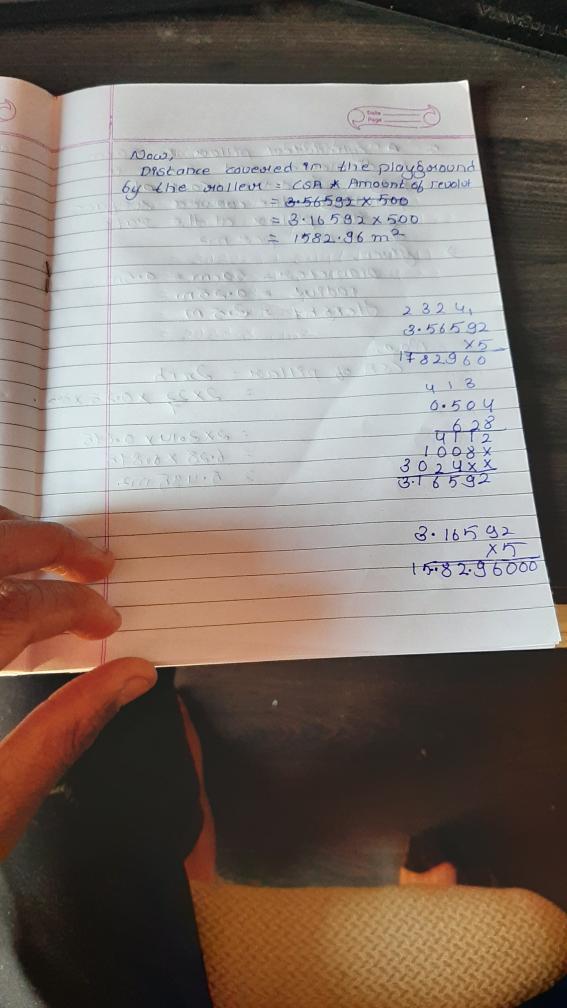 Date
Page
Now,
Distance covered in the playground
by the roller = CSA × Amount of revolut
= 3.56592 × 500
= 3.16592 × 500
= 1582.96 m²
2 3 2 4 1
3.56592
×5
1782960
4 1 3
0.504
628
4112
1008×
3024××
3.16592
3.16592
×5
15.82.96000